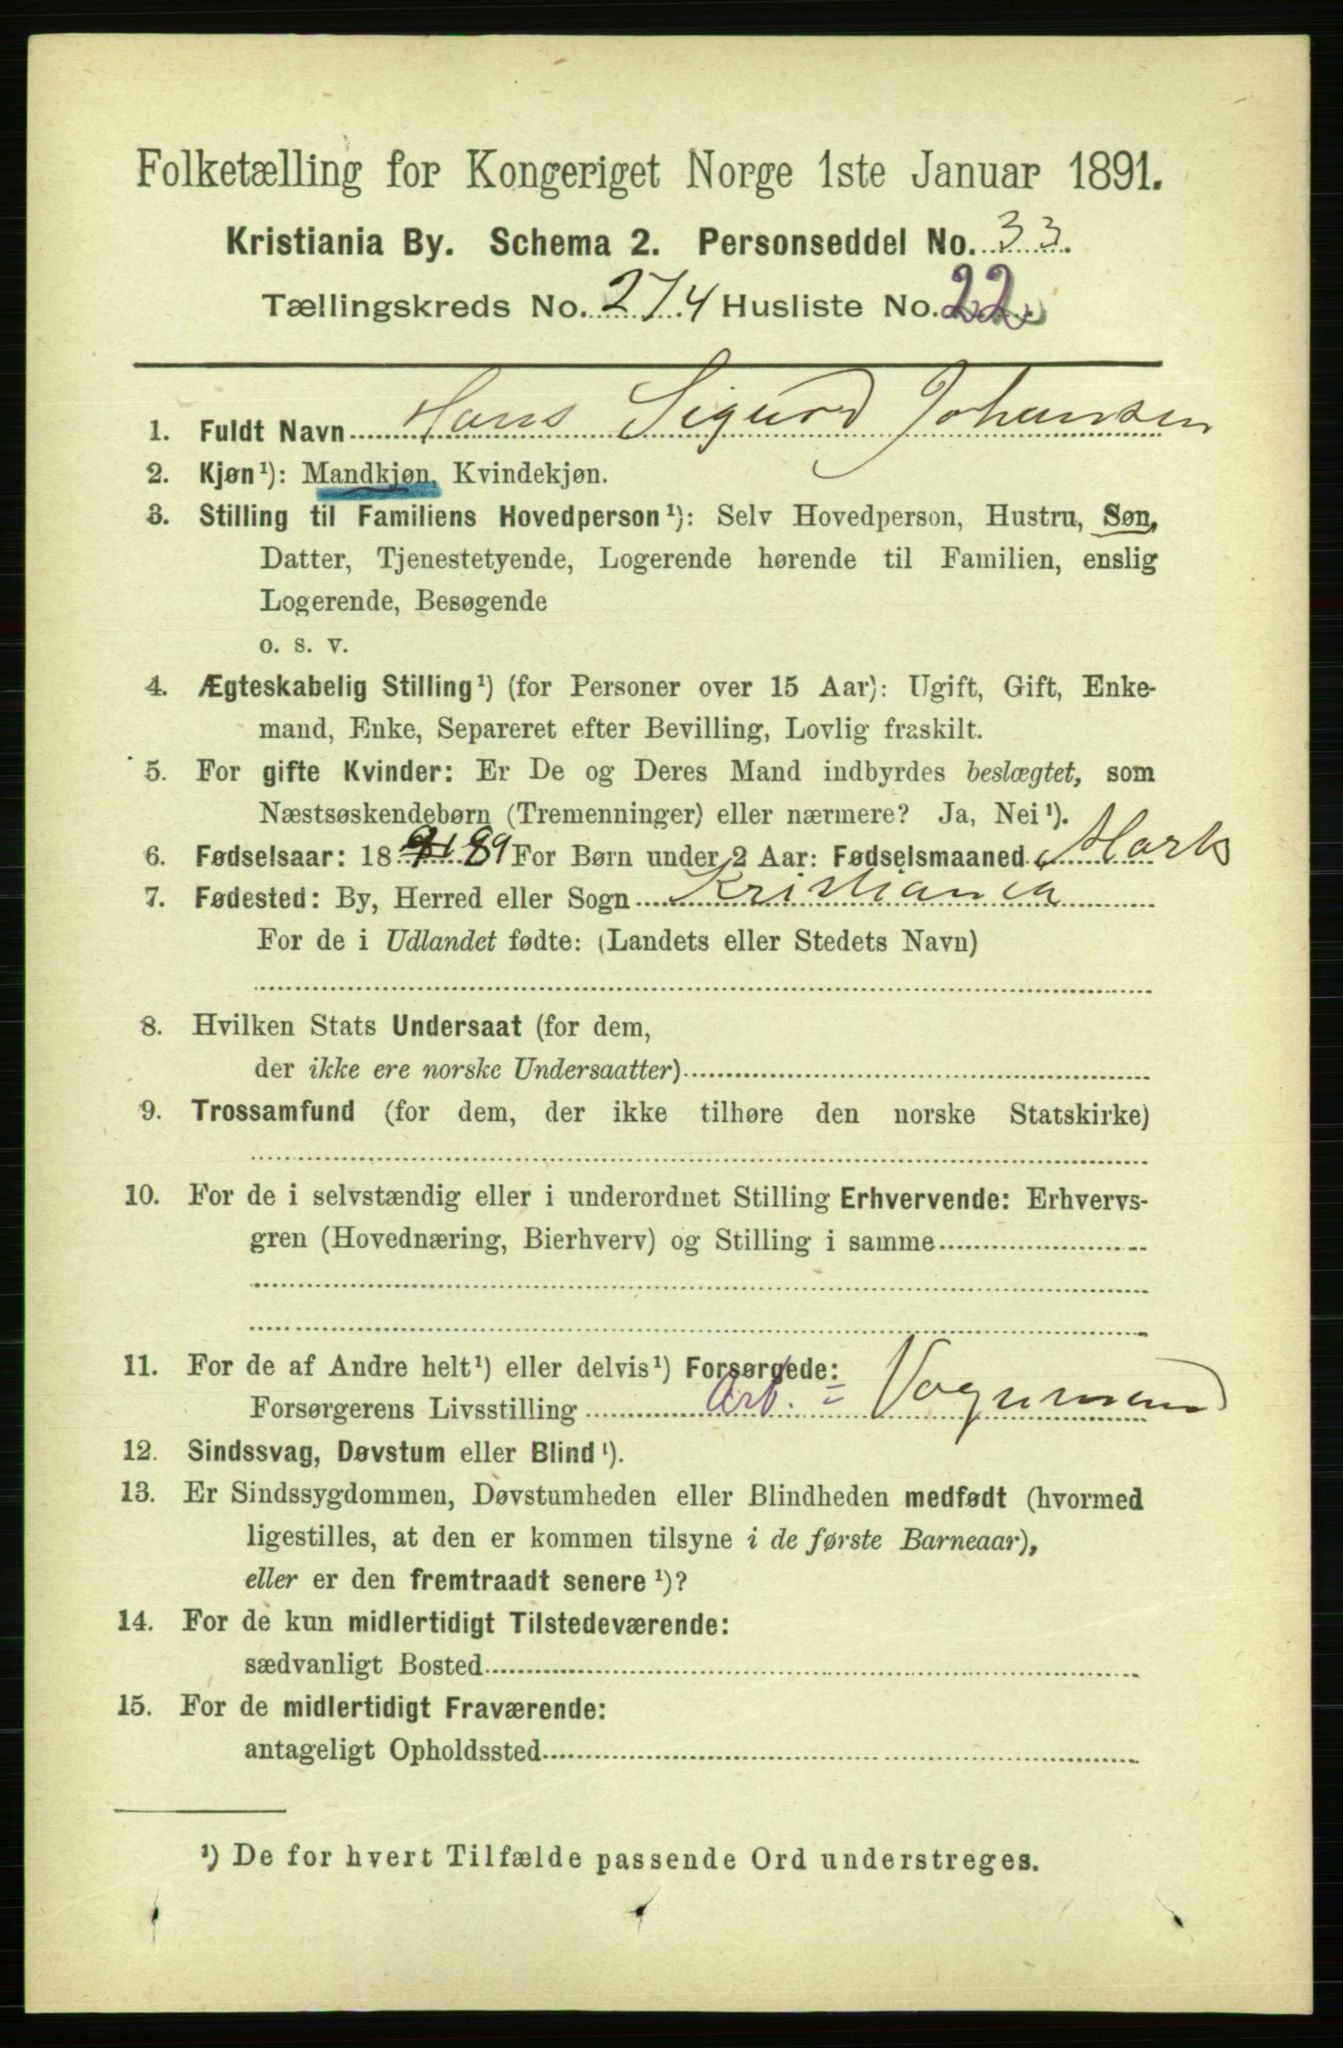 Folketælling for Kongeriget Norge 1ste Januar 1891.
Kristiania By. Schema 2. Personseddel No. 33.
Tællingskreds No. 274 Husliste No. 22.
1. Fuldt Navn Hans Sigurd Johansen
2. Kjøn¹): Mandkjøn, Kvindekjøn.
3. Stilling til Familiens Hovedperson¹): Selv Hovedperson, Hustru, Søn,
Datter, Tjenestetyende, Logerende hørende til Familien, enslig
Logerende, Besøgende
o. s. v.
4. Ægteskabelig Stilling¹) (for Personer over 15 Aar): Ugift, Gift, Enke-
mand, Enke, Separeret efter Bevilling, Lovlig fraskilt.
5. For gifte Kvinder: Er De og Deres Mand indbyrdes beslægtet, som
Næstsøskendebørn (Tremenninger) eller nærmere? Ja, Nei¹).
6. Fødselsaar: 18 91 89 For Børn under 2 Aar: Fødselsmaaned Marts
7. Fødested: By, Herred eller Sogn Kristiania
For de i Udlandet fødte: (Landets eller Stedets Navn)
8. Hvilken Stats Undersaat (for dem,
der ikke ere norske Undersaatter)
9. Trossamfund (for dem, der ikke tilhøre den norske Statskirke)
10. For de i selvstændig eller i underordnet Stilling Erhvervende: Erhvervs-
gren (Hovednæring, Bierhverv) og Stilling i samme
11. For de af Andre helt¹) eller delvis¹) Forsørgede:
Forsørgerens Livsstilling Arb. = Vognmand
12. Sindssvag, Døvstum eller Blind¹).
13. Er Sindssygdommen, Døvstumheden eller Blindheden medfødt (hvormed
ligestilles, at den er kommen tilsyne i de første Barneaar),
eller er den fremtraadt senere¹)?
14. For de kun midlertidigt Tilstedeværende:
sædvanligt Bosted
15. For de midlertidigt Fraværende:
antageligt Opholdssted
¹) De for hvert Tilfælde passende Ord understreges.